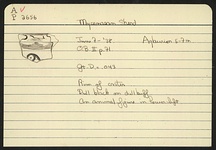 A
P 2656
Mycenaean Sherd
June 7 - '38
O.B. II p. 71
Gr. D. = .043
Rim of crater
Dull black on dull buff
An animal figure in lower left